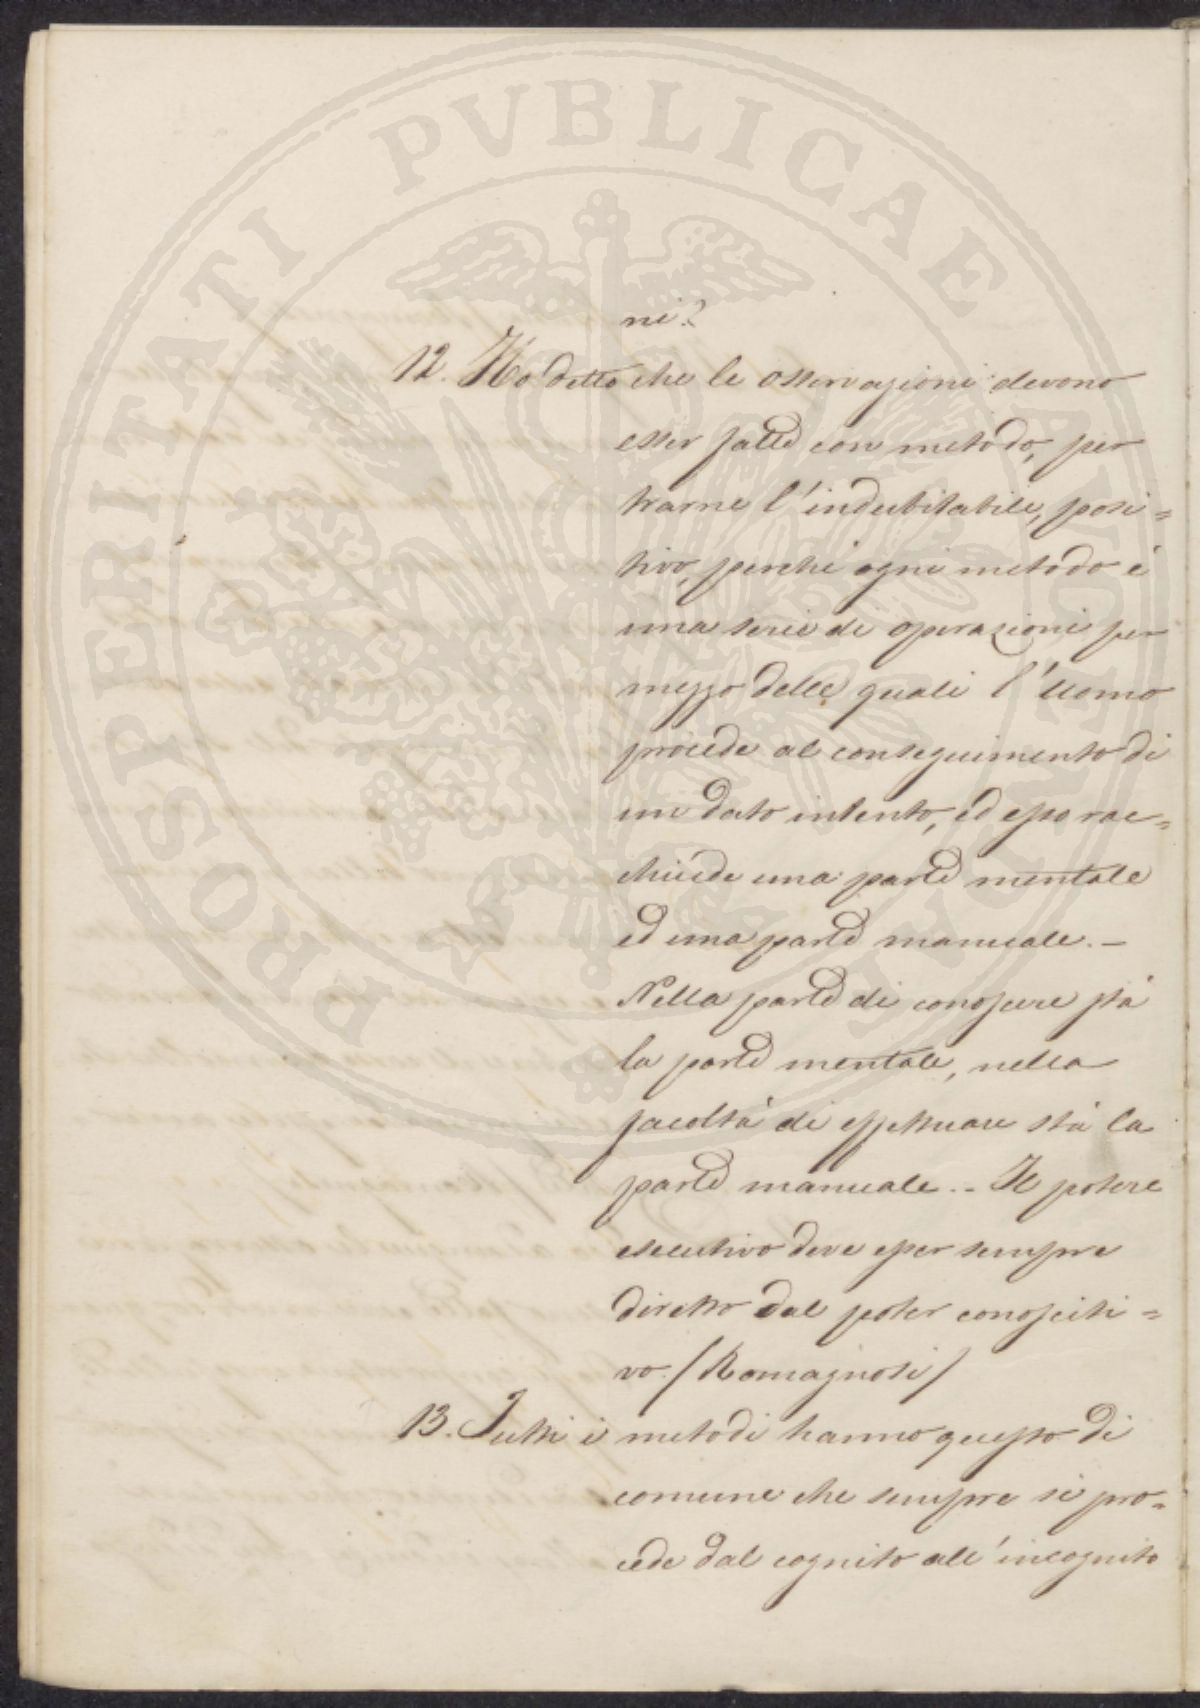 PROSPERITATI PVBLICAE AVGENDAE
ni?
12. Ho detto che le osservazioni devono
esser fatte con metodo, per
trarne l'indubitabile, posi=
tivo, perchè ogni metodo è
una serie di operazioni per
mezzo delle quali l'uomo
procede al conseguimento di
un dato intento, ed esso rac=
chiude una parte mentale
ed una parte manuale. –
Nella parte di conoscere stà
la parte mentale, nella
facoltà di effettuare stà la
parte manuale. – Il potere
esecutivo deve esser sempre
diretto dal poter conosciti=
vo. / Romagnosi /
13. Tutti i metodi hanno questo di
comune che sempre si pro=
cede dal cognito all'incognito